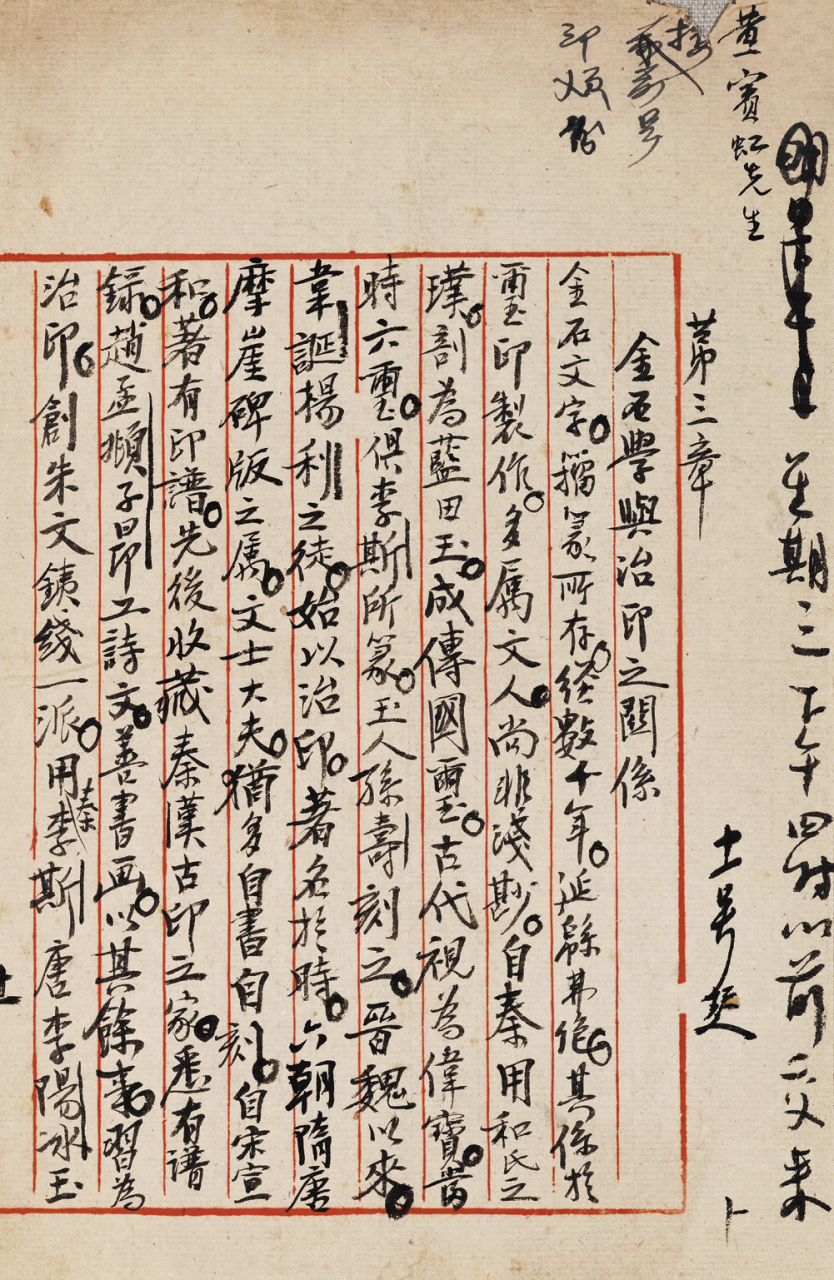 星期三下午四時以前二父来
黄賓虹先生
第三章
十一号
金石學與治印之關係
金石文字。籀篆所存。經數千年。延緜弗絶。其係於
璽印製作。多屬文人。尚非淺尠。自秦用和氏之
璞。剖為藍田玉。成傳國璽。古代視為偉寶。當
時六璽。俱李斯所篆。玉人孫壽刻之。晉魏以來。
韋誕楊利之徒。始以治印。著名於時。六朝隋唐
摩崖碑版之屬。文士大夫。猶多自書自刻。自宋宣
和。著有印譜。先後收藏秦漢古印之家。悉有譜
錄。趙孟頫子昂工詩文。善書画。以其餘事。習為
治印。創朱文鐵綫一派。用秦李斯唐李陽冰玉